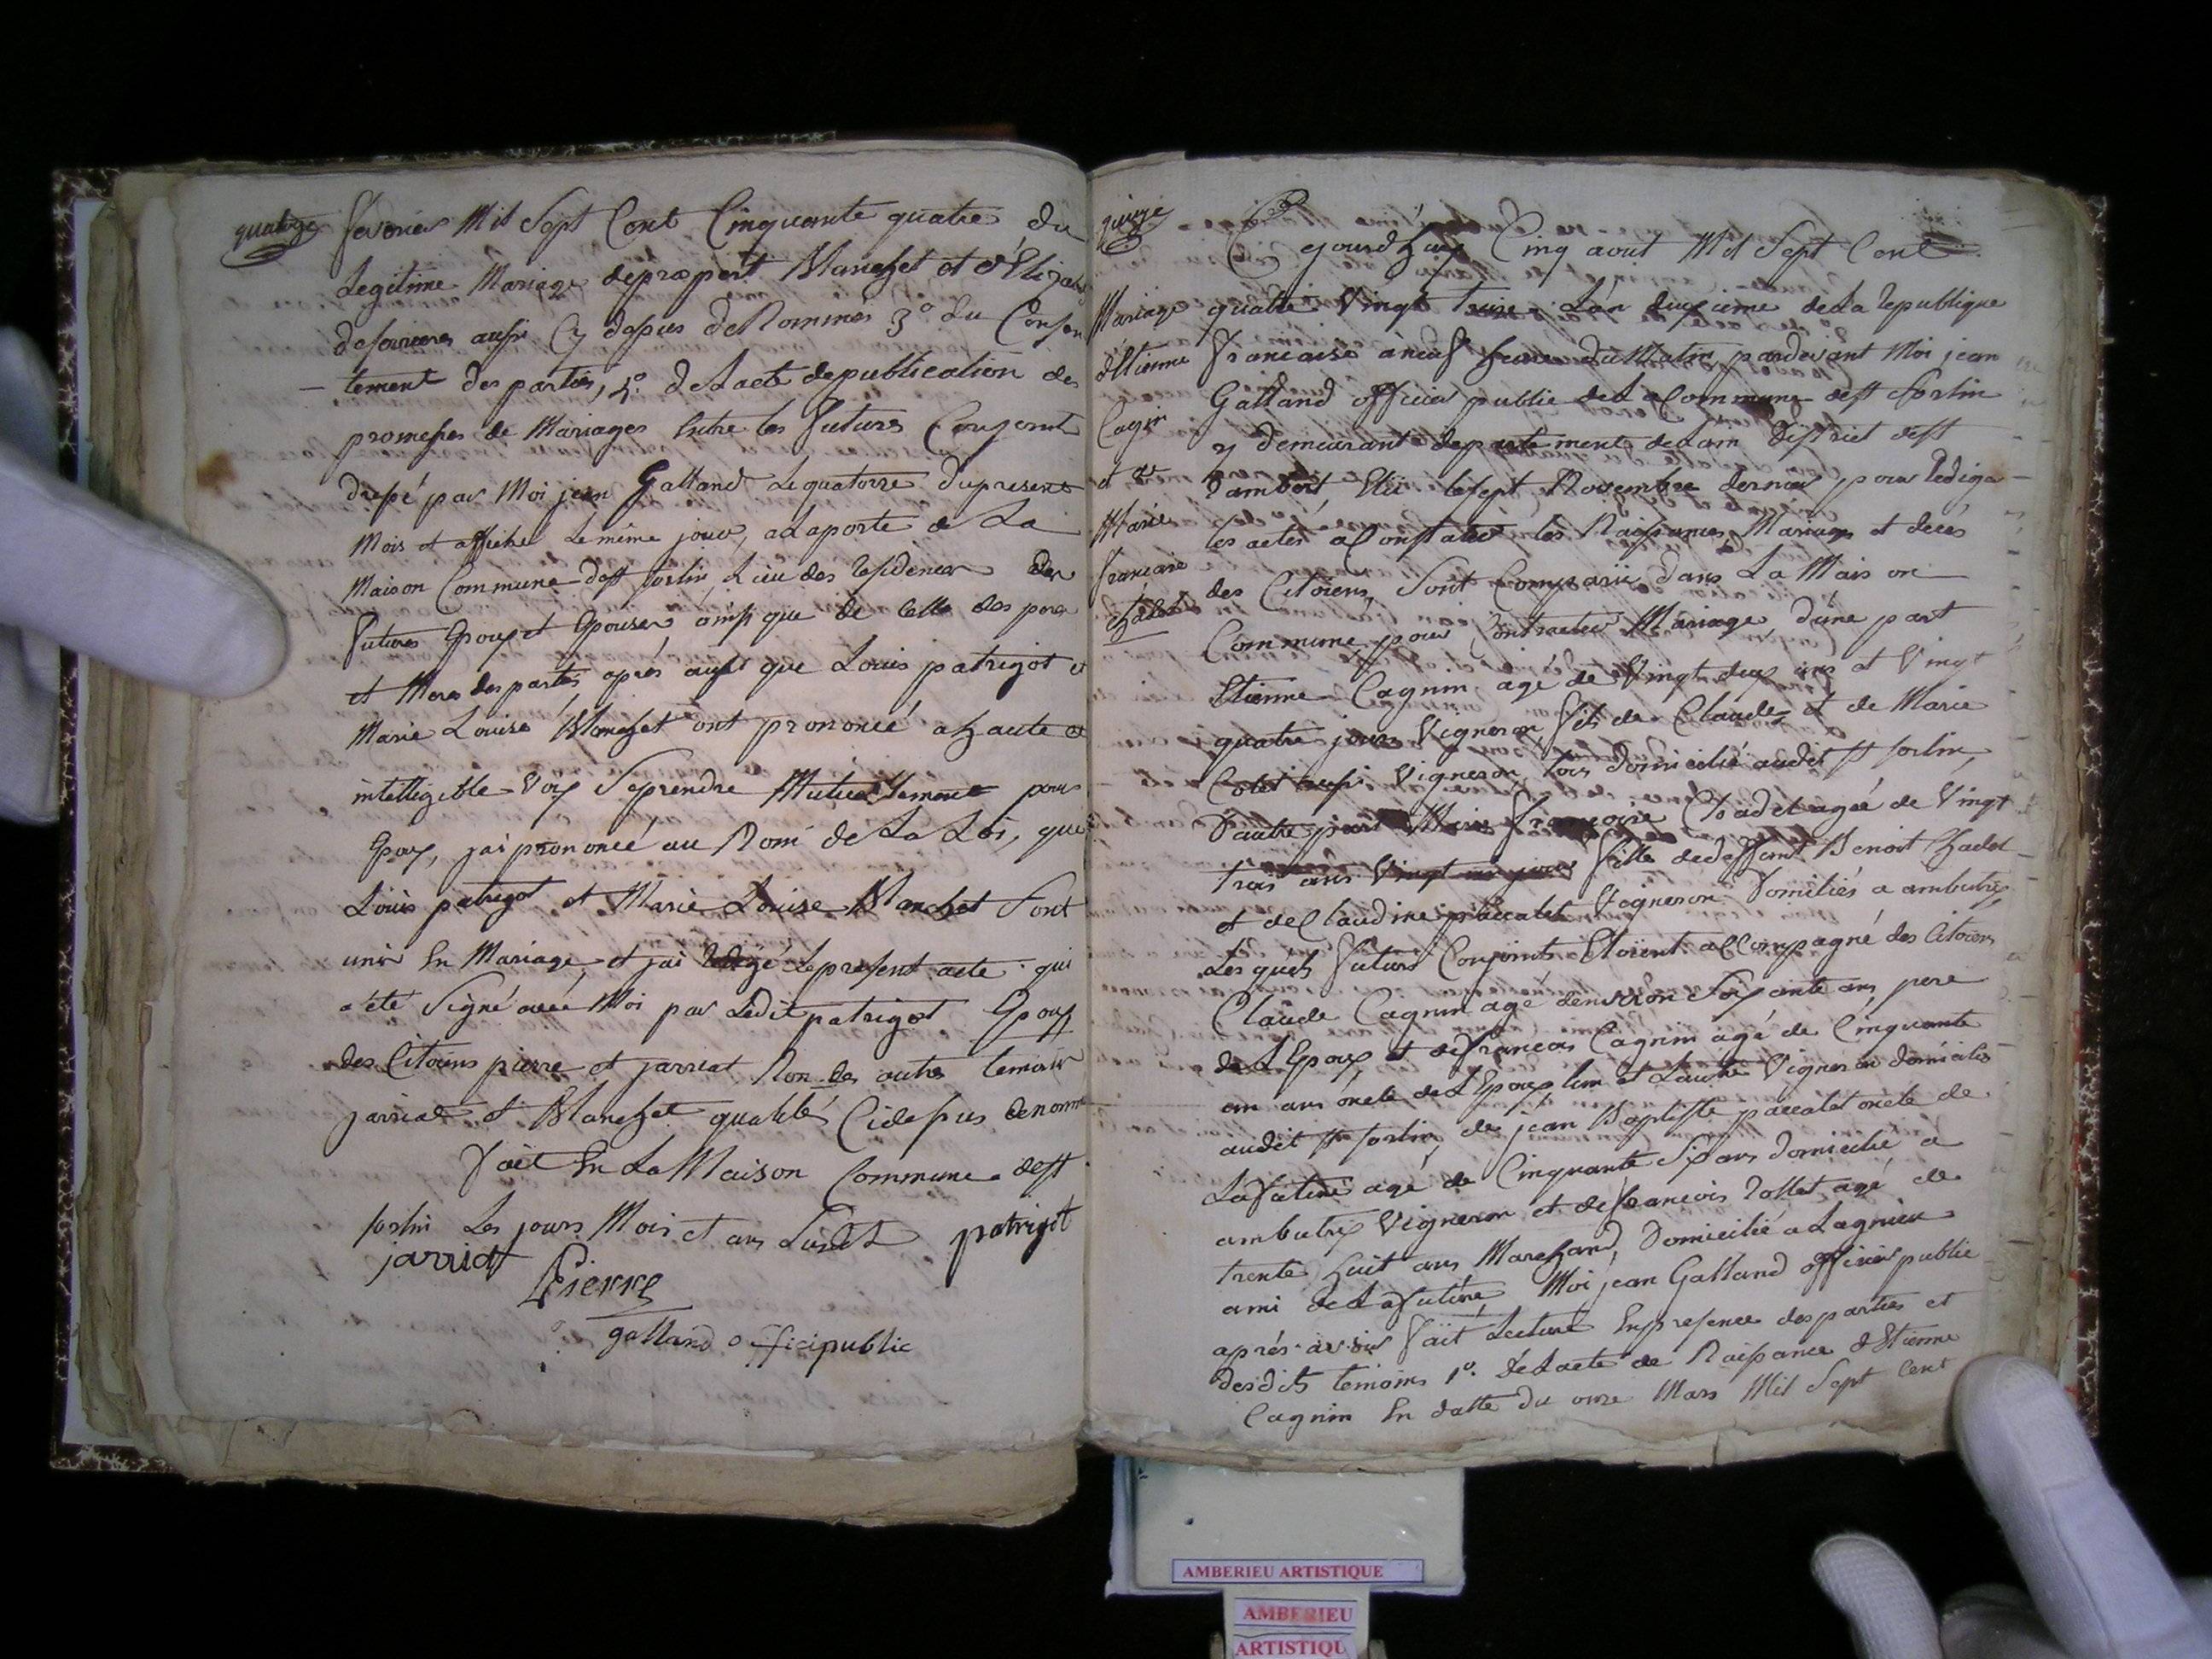 quatorze
fevrier Mil Sept Cent Cinquante quatre du
Legitime Mariage de prospert Blanchet et d'Elizabet
aussi Cy dessus deNommés 3° du Consen
- tement des parties, 4° de Lacte depublication des
promesses de Mariages Entre les futurs Conjoint
dressé par Moi jean Galland Le quatorze dupresent
Mois et affiché Le même jour, a Laporte de La
Maison Commune dest sorlin Lieu des residences des
futurs Epoux et Epouse ainsi que de Celle des pere
et Mere des parties après aussi que Louis patrigot et
Marie Louise Blanchet ont prononcé a haute et
intelligible Voix Se prendre Mutuellement pour
Epoux, jai prononcé au Nom de La Loi, que
Louis patrigot et Marie Louise Blanchet Sont
unis En Mariage, et jai Redigé Lepresent acte qui
a été Signé avec Moi par Ledit patrigot Epoux
des Citoiens pierre et jarriat Non des autres temoins
jarriat et Blanchet qualités Cidessus denommé
Fait En La Maison Commune de st
sorlin Les jours Mois et ans Susdit patrigot
jarriat
Pierre
galland officipublic
quinze
Mariage
d'Etienne
Cagnin
et de
Marie
francoise
Chadel
Cejourd'huy Cinq aout Mil Sept Cent
quatre Vingt treize Lan deuxieme de La Republique
francaise a neuf heures du Matin, pardevant Moi jean
Galland officier public de La Commune dest Sorlin
y demeurant departement de Lain District dest
Rambert Elu le sept Novembre dernier pour Rediger
les actes a Constater les Naissances, Mariages et décés
des Citoiens, Sont Comparu dans La Maison
Commune pour Contracter Mariage, d'une part
Etienne Cagnin agé de Vingt deux ans et Vingt
quatre jours Vigneron fils de Claude et de Marie
Colet aussi Vigneron, tous domicilié audit st sorlin,
D'autre part Marie francoise Chadel agée de Vingt
trois ans Vingt un jours fille de deffunt Benoit Chadel
et de Claudine paccalet Vigneron Domiliés a ambutrix
Lesquels futurs Conjoints Etoient accompagné des Citoiens
Claude Cagnin agé denviron Soixante ans pere
de LEpoux et de francois Cagnin agé de Cinquante
un ans oncle de LEpoux lun et Lautre Vigneron domiciliés
audit st sorlin, de jean Baptiste paccalet oncle de
La future agé de Cinquante Six ans domicilié a
ambutrix Vigneron et de francois Rollet agé de
trente huit ans Marchand, Domicilié a Lagnieu
ami de La future, Moi jean Galland officier public
après avoir fait Lecture En presence des parties et
desdits temoins 1° de Lacte de Naissance dEtienne
Cagnin En datte du onze Mars Mil Sept Cent
AMBERIEU ARTISTIQUE
AMBERIEU
ARTISTIQU